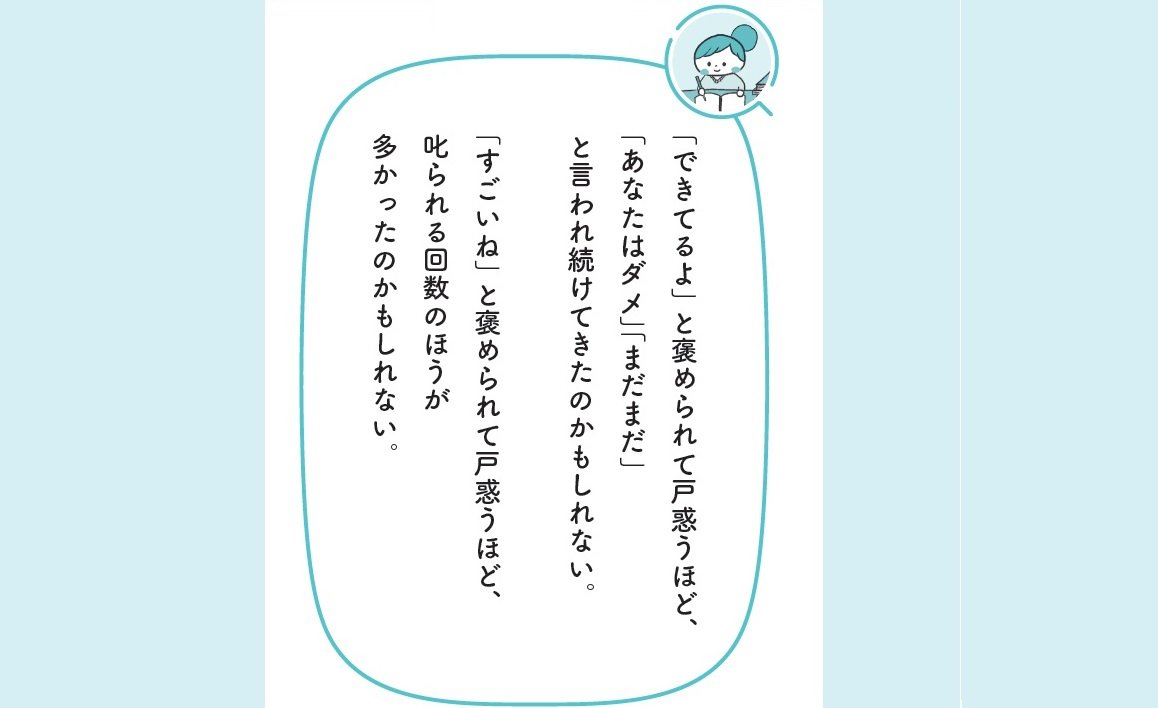 「できてるよ」と褒められて戸惑うほど、
「あなたはダメ」「まだまだ」
と言われ続けてきたのかもしれない。
「すごいね」と褒められて戸惑うほど、
叱られる回数のほうが
多かったのかもしれない。